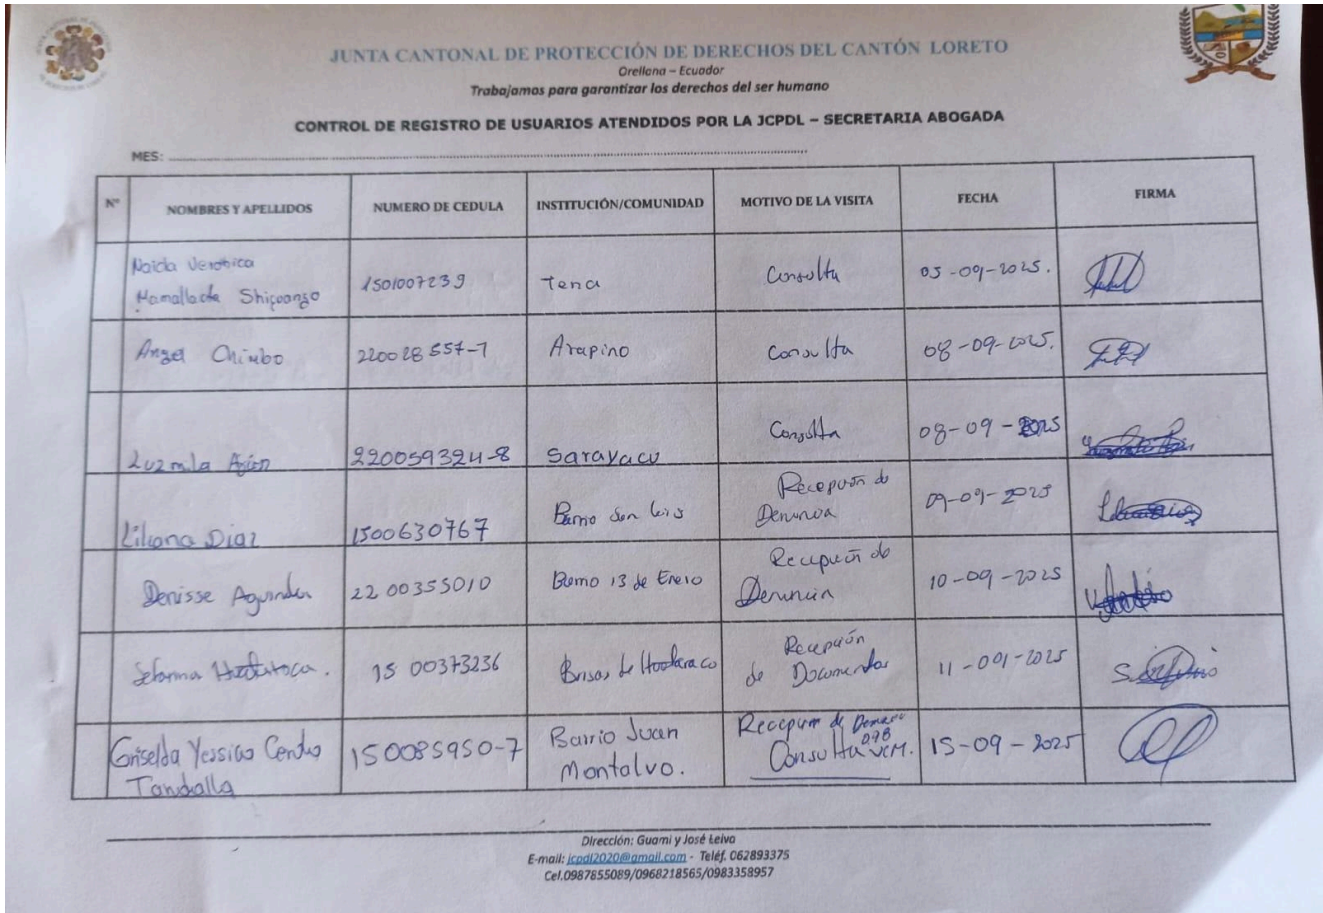 JUNTA CANTONAL DE PROTECCIÓN DE DERECHOS DEL CANTÓN LORETO
Orellana – Ecuador
Trabajamos para garantizar los derechos del ser humano
CONTROL DE REGISTRO DE USUARIOS ATENDIDOS POR LA JCPDL – SECRETARIA ABOGADA
MES:
N° NOMBRES Y APELLIDOS NUMERO DE CEDULA INSTITUCIÓN/COMUNIDAD MOTIVO DE LA VISITA FECHA FIRMA
Naida Veronica
Mamallacta 1501007239 Tena Consulta 05-09-2025.
Angel Chimbo 220028557-7 Arapino Consulta 08-09-2025.
Luzmila 220059324-8 Sarayacu Consulta 08-09-2025
Liliana Diaz 1500630767 Barrio San Luis Recepción de
Denuncia 09-09-2025
Denisse Aguinda 2200355010 Barrio 13 de Enero Recepción de
Denuncia 10-09-2025
1500373236 Brisas de Recepción
de Documentos 11-09-2025
Griselda Yessica
Tandalla 150085950-7 Barrio Juan
Montalvo. Recepcion de
Consulta VCM. 15-09-2025
Dirección: Guami y José Leiva
E-mail: jcpdl2020@gmail.com - Teléf. 062893375
Cel.0987855089/0968218565/0983358957